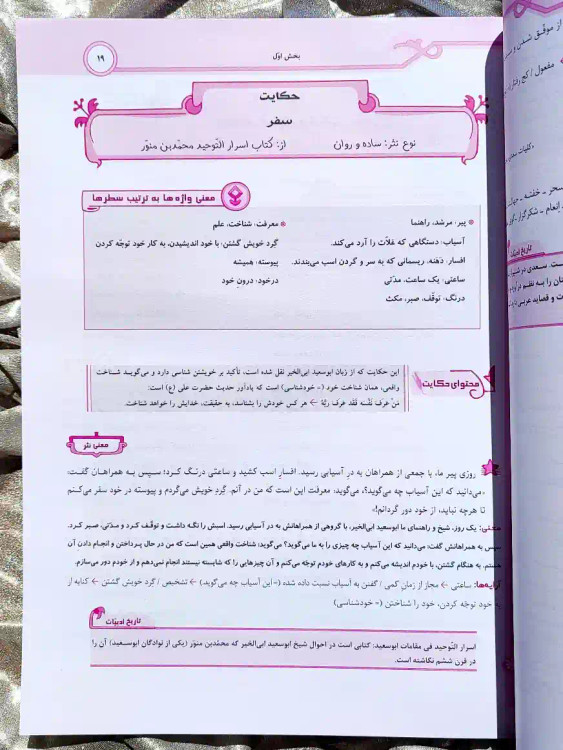 بخش اوّل
۱۹
حکایت
سفر
نوع نثر: ساده و روان
از: کتاب اسرار التّوحید محمّدبن منوّر
معنی واژه ها به ترتیب سطرها
* پیر: مرشد، راهنما
آسیاب: دستگاهی که غلّات را آرد می‌کند.
افسار: دَهَنه، ریسمانی که به سر و گردن اسب می‌بندند.
ساعتی: یک ساعت، مدّتی
درنگ: توقّف، صبر، مکث
* معرفت: شناخت، علم
گِردِ خویش گشتن: با خود اندیشیدن، به کار خود توجّه کردن
پیوسته: همیشه
درخود: درون خود
محتوای حکایت
این حکایت که از زبان ابوسعید ابی‌الخیر نقل شده است، تأکید بر خویشتن شناسی دارد و می‌گویـد شـناخت
واقعی، همان شناخت خود (= خودشناسی) است که یادآور حدیث حضرت علی (ع) است:
مَنْ عَرَفَ نَفْسَه فَقَد عَرَفَ رَبَّهُ ← هر کس خودش را بشناسد، به حقیقت، خدایش را خواهد شناخت.
معنی نثر
روزی پیر ما، با جمعی از همراهان به درِ آسیابی رسید. افسارِ اسب کشید و ساعتی درنگ کرد؛ سپـس بـه همراهـان گفـت:
«می‌دانید که این آسیاب چه می‌گوید؟، می‌گوید: معرفت این است که من در آنم. گِردِ خویش می‌گردم و پیوسته در خود سفر می‌کنـم
تا هرچه نباید، از خود دور گردانم!»
معنی: یک روز، شیخ و راهنمای ما ابوسعید ابی‌الخیر، با گروهی از همراهانش به در آسیابی رسید. اسبش را نگه داشـت و توقّـف کـرد و مـدّتی، صبـر کـرد.
سپس به همراهانش گفت: می‌دانید که این آسیاب چه چیزی را به ما می‌گوید؟ می‌گوید: شناخت واقعی همین است که من در حال پرداختن و انجـام دادن آن
هستم. به هنگام گشتن، با خودم اندیشه می‌کنم و به کارهای خودم توجّه می‌کنم و آن چیزهایی را که شایسته نیستند انجام نمی‌دهم و از خودم دور می‌سازم.
آرایه‌ها: ساعتی ← مجاز از زمان کمی / گفتن به آسیاب نسبت داده شده (= این آسیاب چه می‌گوید) ← تشخیص / گِردِ خویش گشتن ← کنایه از
به خود توجّه کردن، خود را شناختن (= خودشناسی)
تاریخ ادبیّات
اسرار التّوحید فی مقامات ابوسعید: کتابی است در احوال شیخ ابوسعید ابی‌الخیر که محمّدبن منوّر (یکی از نوادگان ابوسـعید) آن را
در قرن ششم نگاشته است.
از موفّـق شـدن و
مفعول / کج رفتار
تاریخ ادبیّات